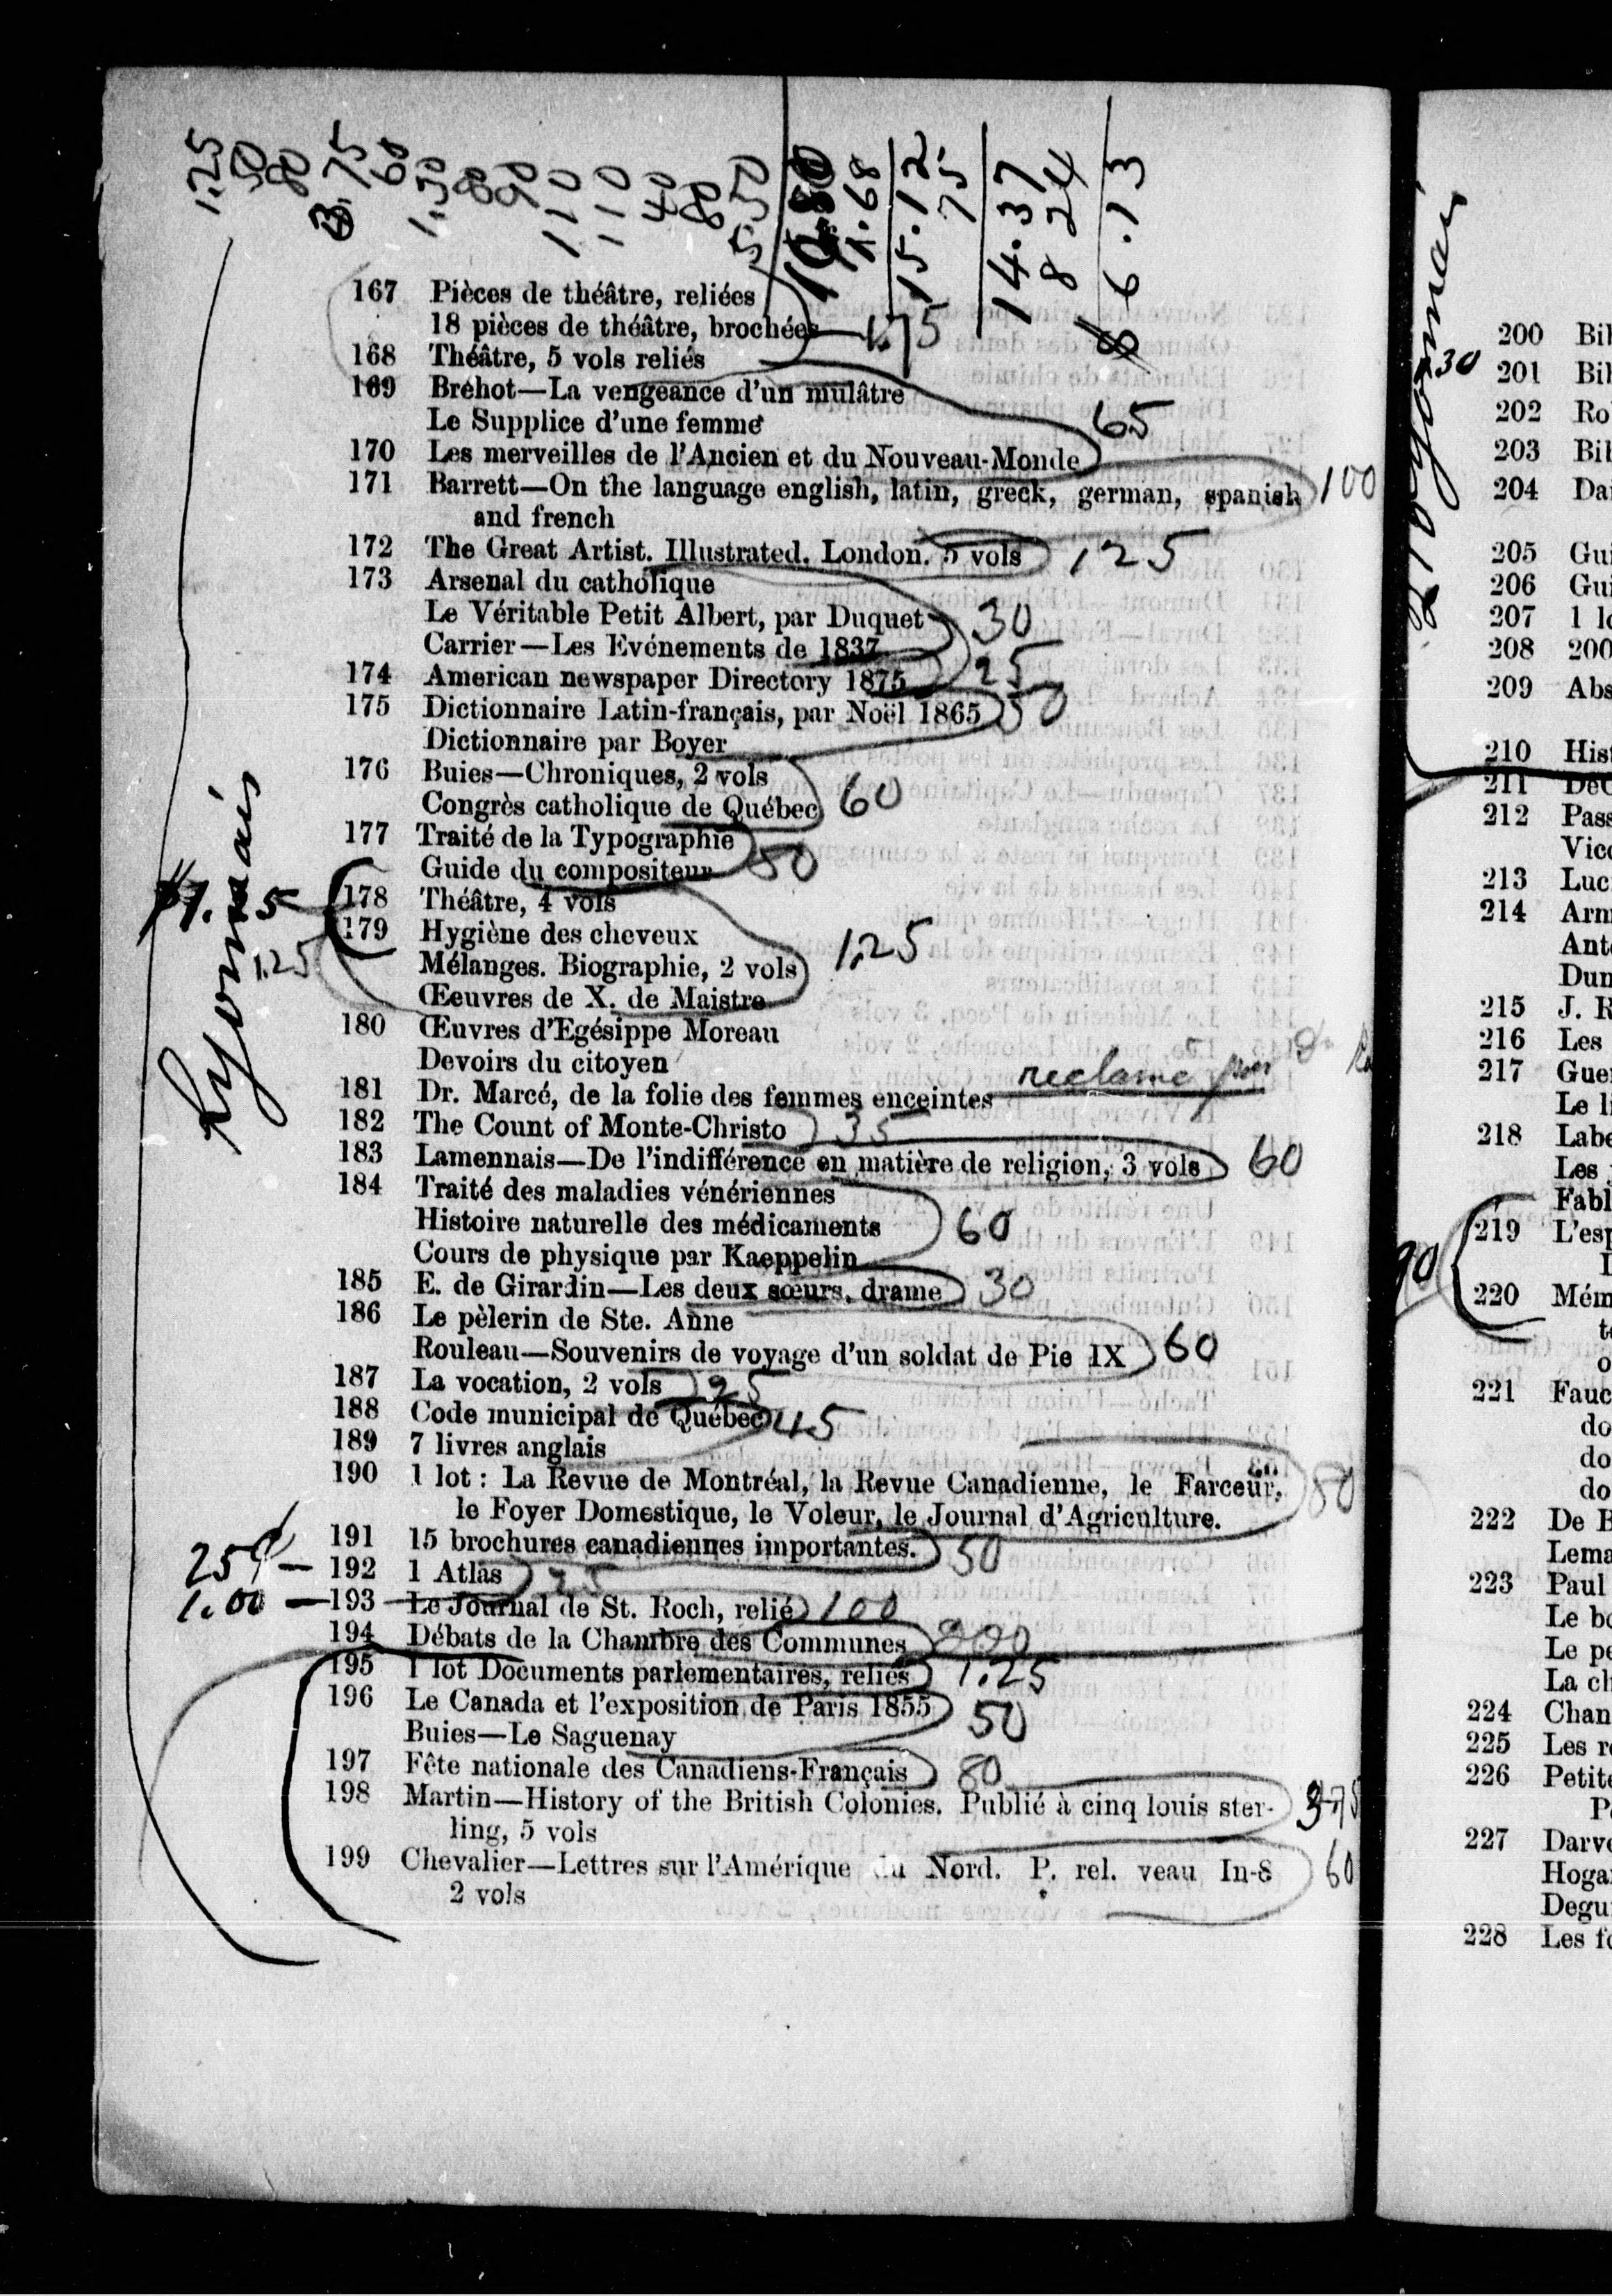 1.25
50
80
3.75
60
1.50
80
90
1.10
1.10
40
80
5.50
1.68
15.12
75
14.37
8 24
6.13
167 Pièces de théâtre, reliées
18 pièces de théâtre, brochées 1.75
168 Théâtre, 5 vols reliés
169 Bréhot—La vengeance d'un mulâtre
Le Supplice d'une femme 65
170 Les merveilles de l'Ancien et du Nouveau-Monde
171 Barrett—On the language english, latin, greek, german, spanish 100
and french
172 The Great Artist. Illustrated. London. 5 vols 125
173 Arsenal du catholique
Le Véritable Petit Albert, par Duquet 30
Carrier—Les Evénements de 1837
174 American newspaper Directory 1875 25
175 Dictionnaire Latin-français, par Noël 1865 50
Dictionnaire par Boyer
176 Buies—Chroniques, 2 vols
Congrès catholique de Québec 60
177 Traité de la Typographie
Guide du compositeur 50
178 Théâtre, 4 vols
179 Hygiène des cheveux 1.25
1.25 Mélanges. Biographie, 2 vols
Œeuvres de X. de Maistre
180 Œuvres d'Egésippe Moreau
Devoirs du citoyen
181 Dr. Marcé, de la folie des femmes enceintes reclamé
182 The Count of Monte-Christo 35
183 Lamennais—De l'indifférence en matière de religion, 3 vols 60
184 Traité des maladies vénériennes
Histoire naturelle des médicaments 60
Cours de physique par Kaeppelin
185 E. de Girardin—Les deux sœurs, drame 30
186 Le pèlerin de Ste. Anne
Rouleau—Souvenirs de voyage d'un soldat de Pie IX 60
187 La vocation, 2 vols 25
188 Code municipal de Québec 45
189 7 livres anglais
190 1 lot : La Revue de Montréal, la Revue Canadienne, le Farceur, 80
le Foyer Domestique, le Voleur, le Journal d'Agriculture.
191 15 brochures canadiennes importantes. 50
25¢ — 192 1 Atlas 25
1.00 — 193 Le Journal de St. Roch, relié 100
194 Débats de la Chambre des Communes
195 1 lot Documents parlementaires, reliés 1.25
196 Le Canada et l'exposition de Paris 1855 50
Buies—Le Saguenay
197 Fête nationale des Canadiens-Français 80
198 Martin—History of the British Colonies. Publié à cinq louis ster- 375
ling, 5 vols
199 Chevalier—Lettres sur l'Amérique du Nord. P. rel. veau In-8 60
2 vols
200 Bil
30 201 Bil
202 Ro
203 Bil
204 Da
205 Gui
206 Gui
207 1 l
208 200
209 Abs
210 Hist
211 DeC
212 Pass
Vico
213 Luc
214 Arm
Ant
Dun
215 J. R
216 Les
217 Guer
Le li
218 Labe
Les
Fabl
219 L'esp
90
220 Mém
t
o
221 Fauc
do
do
do
222 De B
Lema
223 Paul
Le bo
Le pe
La ch
224 Chan
225 Les r
226 Petite
P
227 Darv
Hoga
Degu
228 Les f